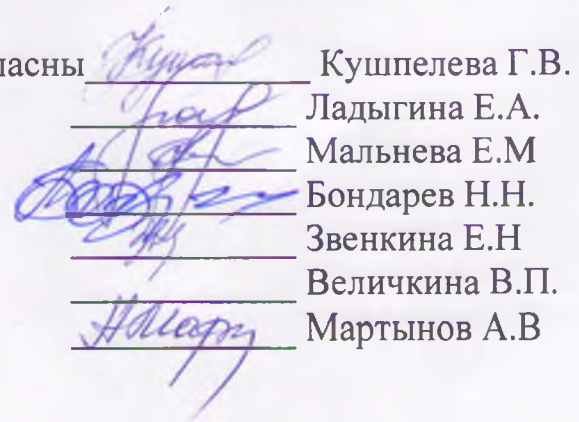 ласны Кушпелева Г.В.
Ладыгина Е.А.
Мальнева Е.М
Бондарев Н.Н.
Звенкина Е.Н
Величкина В.П.
Мартынов А.В